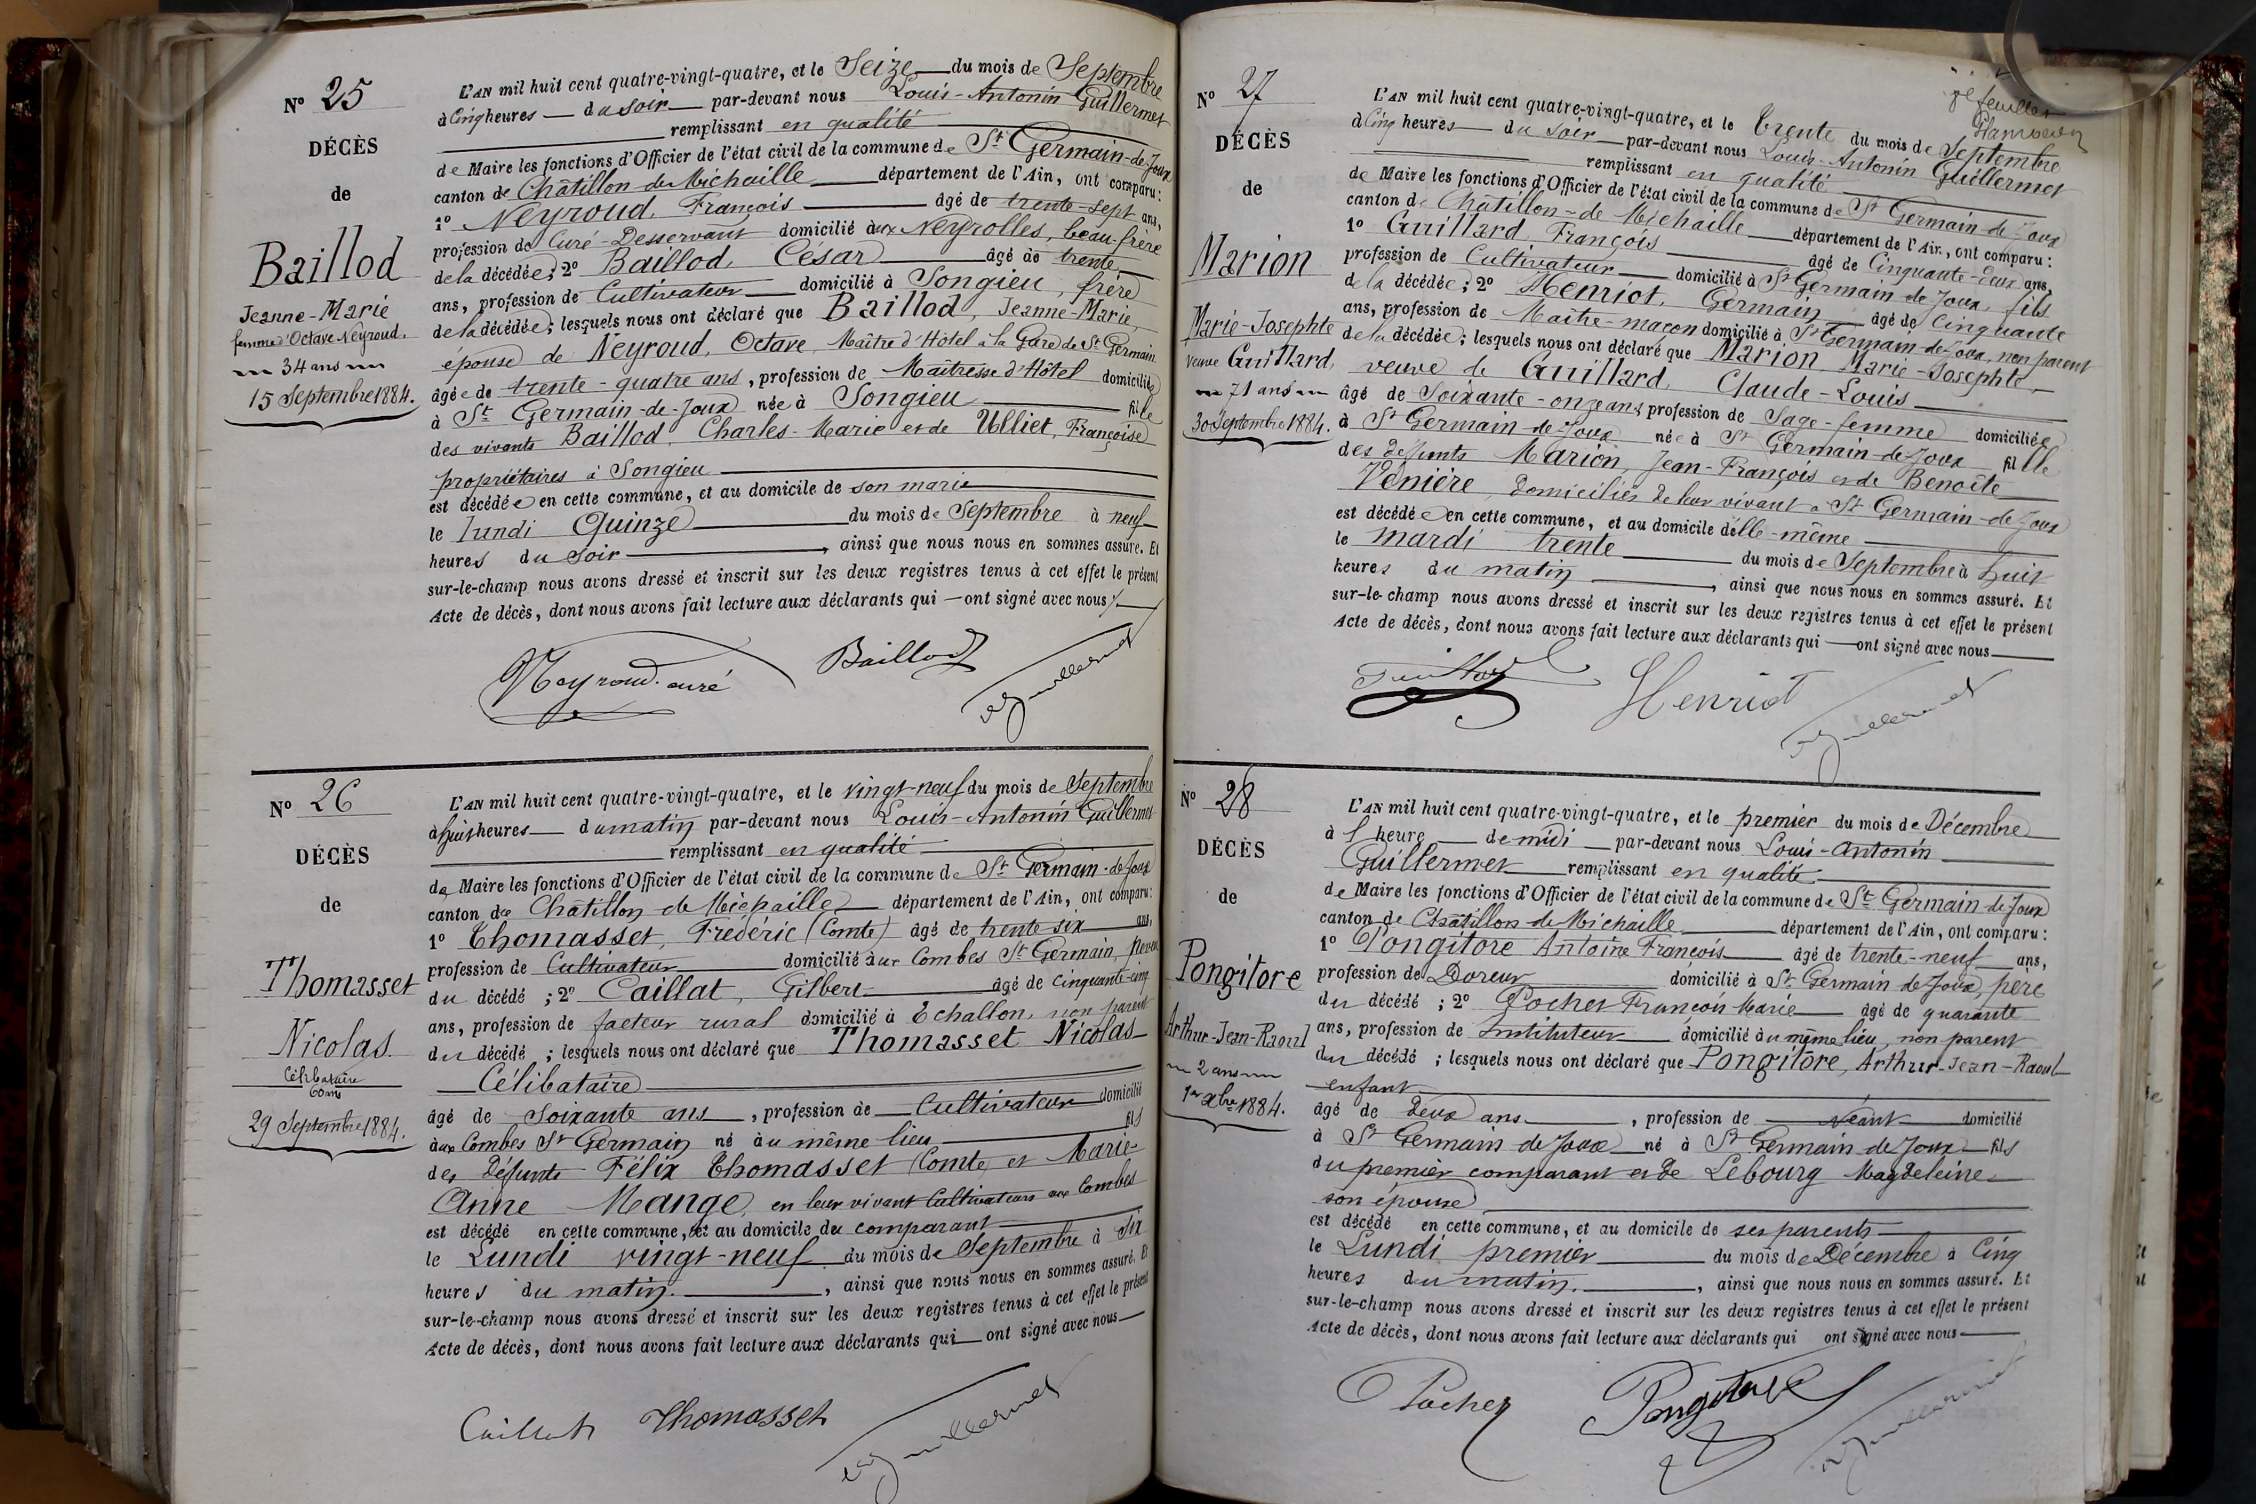 N° 25
DÉCÈS
de
Baillod
Jeanne-Marie
femme d'Octave Neyroud.
34 ans
15 Septembre 1884.
L'AN mil huit cent quatre-vingt-quatre, et le Seize du mois de Septembre
à Cinq heures du soir par-devant nous Louis-Antonin Guillermet
remplissant en qualité
de Maire les fonctions d'Officier de l'état civil de la commune de St Germain-de-Joux
canton de Châtillon de Michaille département de l'Ain, ont comparu:
1° Neyroud, François âgé de trente-sept ans,
profession de Curé-Desservant domicilié aux Neyrolles, beau-frère
de la décédée; 2° Baillod, César âgé de trente
ans, profession de Cultivateur domicilié à Songieu, frère
de la décédée; lesquels nous ont déclaré que Baillod, Jeanne-Marie,
épouse de Neyroud, Octave, Maître d'Hôtel à la Gare de St Germain
âgée de trente-quatre ans, profession de Maîtresse d'Hôtel domiciliée
à St Germain-de-Joux née à Songieu fille
des vivants Baillod, Charles-Marie et de Ulliet, Françoise
propriétaires à Songieu
est décédée en cette commune, et au domicile de son marie
le lundi Quinze du mois de Septembre à neuf
heures du soir, ainsi que nous nous en sommes assuré. Et
sur-le-champ nous avons dressé et inscrit sur les deux registres tenus à cet effet le présent
Acte de décès, dont nous avons fait lecture aux déclarants qui ont signé avec nous
Neyroud. curé Baillod Guillermet
N° 26
DÉCÈS
de
Thomasset
Nicolas.
Célibataire
60 ans
29 Septembre 1884.
L'AN mil huit cent quatre-vingt-quatre, et le vingt-neuf du mois de Septembre
à huit heures du matin par-devant nous Louis-Antonin Guillermet
remplissant en qualité
de Maire les fonctions d'Officier de l'état civil de la commune de St Germain-de-Joux
canton de Châtillon de Michaille département de l'Ain, ont comparu:
1° Thomasset, Frédéric (Comte) âgé de trente six ans,
profession de Cultivateur domicilié aux Combes St Germain, neveu
du décédé; 2° Caillat, Gilbert âgé de Cinquante-cinq
ans, profession de facteur rural domicilié à Echallon, non parent
du décédé; lesquels nous ont déclaré que Thomasset Nicolas
Célibataire
âgé de Soixante ans, profession de Cultivateur domicilié
aux Combes St Germain né au même lieu fils
des Défunts Félix Thomasset (Comte et Marie-
Anne Mange, en leur vivant Cultivateurs aux Combes
est décédé en cette commune, et au domicile du comparant
le Lundi vingt-neuf du mois de Septembre à Six
heures du matin., ainsi que nous nous en sommes assuré. Et
sur-le-champ nous avons dressé et inscrit sur les deux registres tenus à cet effet le présent
Acte de décès, dont nous avons fait lecture aux déclarants qui ont signé avec nous
Caillat Thomasset Guillermet
feuillet
N° 27
DÉCÈS
de
Marion
Marie-Josephte
veuve Guillard,
71 ans
30 Septembre 1884.
L'AN mil huit cent quatre-vingt-quatre, et le trente du mois de Septembre
à Cinq heures du soir par-devant nous Louis-Antonin Guillermet
remplissant en qualité
de Maire les fonctions d'Officier de l'état civil de la commune de St Germain-de-Joux
canton de Châtillon-de-Michaille département de l'Ain, ont comparu:
1° Guillard, François âgé de Cinquante-deux ans,
profession de Cultivateur domicilié à St Germain de Joux, fils
de la décédée; 2° Henriot, Germain âgé de Cinquante
ans, profession de Maître-maçon domicilié à St Germain-de-Joux, non parent
de la décédée; lesquels nous ont déclaré que Marion Marie-Josephte
veuve de Guillard, Claude-Louis
âgé de Soixante-onze ans, profession de Sage-femme domiciliée
à St Germain-de-Joux née à St Germain-de-Joux fille
des Défunts Marion, Jean-François et de Benoîte
Venière, domiciliés de leur vivant à St Germain-de-Joux
est décédée en cette commune, et au domicile d'elle-même
le mardi trente du mois de Septembre à huit
heures du matin, ainsi que nous nous en sommes assuré. Et
sur-le-champ nous avons dressé et inscrit sur les deux registres tenus à cet effet le présent
Acte de décès, dont nous avons fait lecture aux déclarants qui ont signé avec nous
Guillard Henriot Guillermet
N° 28
DÉCÈS
de
Pongitore
Arthur-Jean-Raoul
2 ans
1er Xbre 1884.
L'AN mil huit cent quatre-vingt-quatre, et le premier du mois de Décembre
à 1 heure de midi par-devant nous Louis-Antonin
Guillermet remplissant en qualité
de Maire les fonctions d'Officier de l'état civil de la commune de St Germain-de-Joux
canton de Châtillon de Michaille département de l'Ain, ont comparu:
1° Pongitore Antoine François âgé de trente-neuf ans,
profession de Doreur domicilié à St Germain de Joux, père
du décédé; 2° Pochet François Marie âgé de quarante
ans, profession de Instituteur domicilié au même lieu, non parent
du décédé; lesquels nous ont déclaré que Pongitore, Arthur-Jean-Raoul
enfant
âgé de deux ans, profession de néant domicilié
à St Germain de Joux né à St Germain de Joux fils
du premier comparant et de Lebourg Magdeleine
son épouse
est décédé en cette commune, et au domicile de ses parents
le Lundi premier du mois de Décembre à Cinq
heures du matin., ainsi que nous nous en sommes assuré. Et
sur-le-champ nous avons dressé et inscrit sur les deux registres tenus à cet effet le présent
Acte de décès, dont nous avons fait lecture aux déclarants qui ont signé avec nous
Pochet Pongitore Guillermet